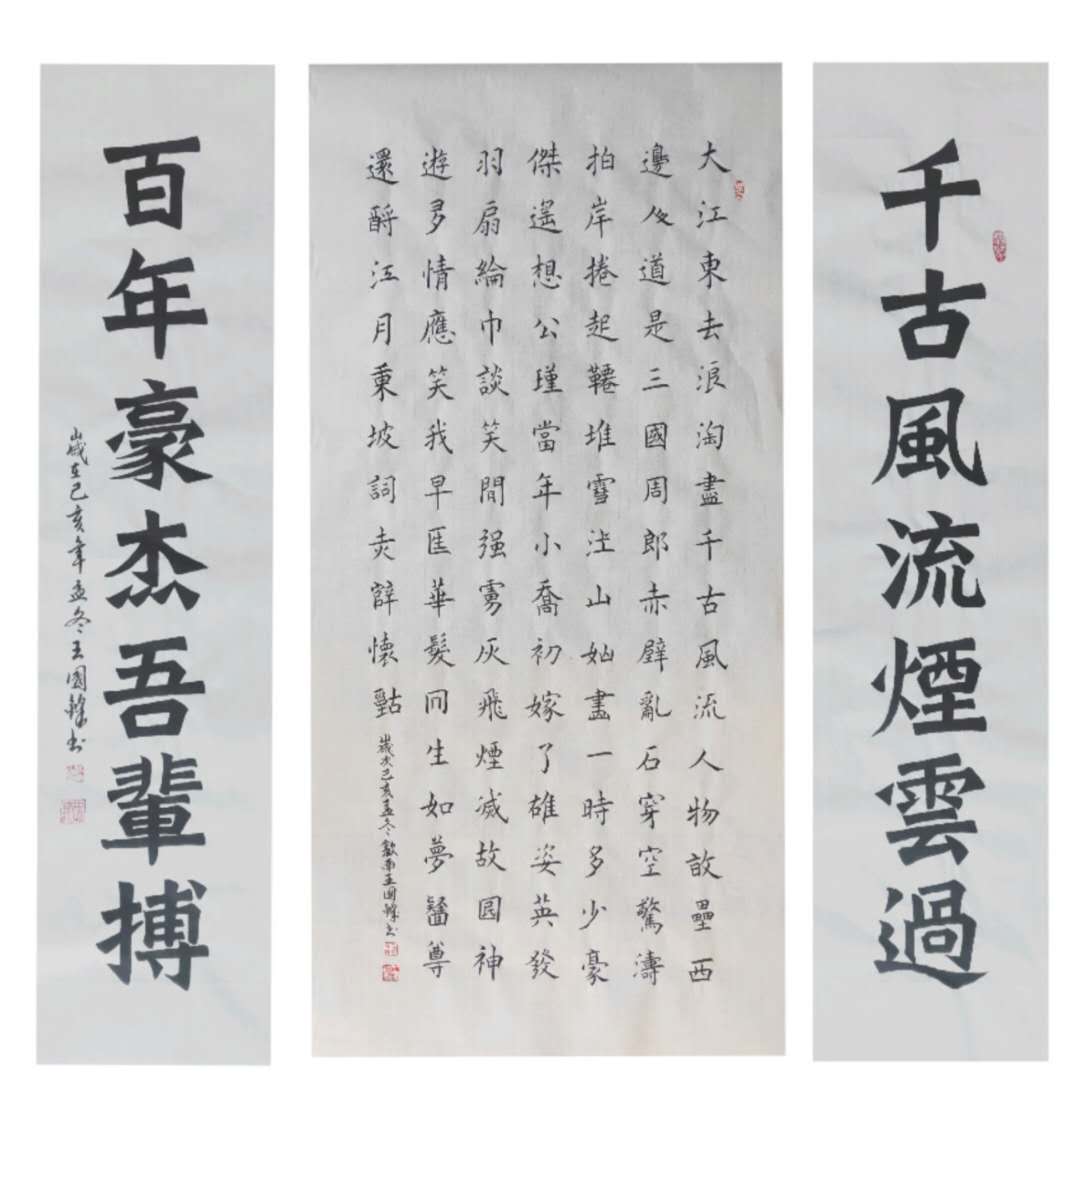 千古風流煙雲過
大江東去浪淘盡千古風流人物故壘西
邊道是三國周郎赤壁亂石穿空驚濤
拍岸捲起韆堆雪江山如畫一時多少豪
傑遥想公瑾當年小喬初嫁了雄姿英發
羽扇綸巾談笑間强虜灰飛煙滅故园神
遊多情應笑我早華髮生如夢尊
還酹江月東坡詞赤壁懷
歲次己亥孟冬歙南王國鋒书
百年豪杰吾輩搏
歲在己亥年孟冬王國鋒书